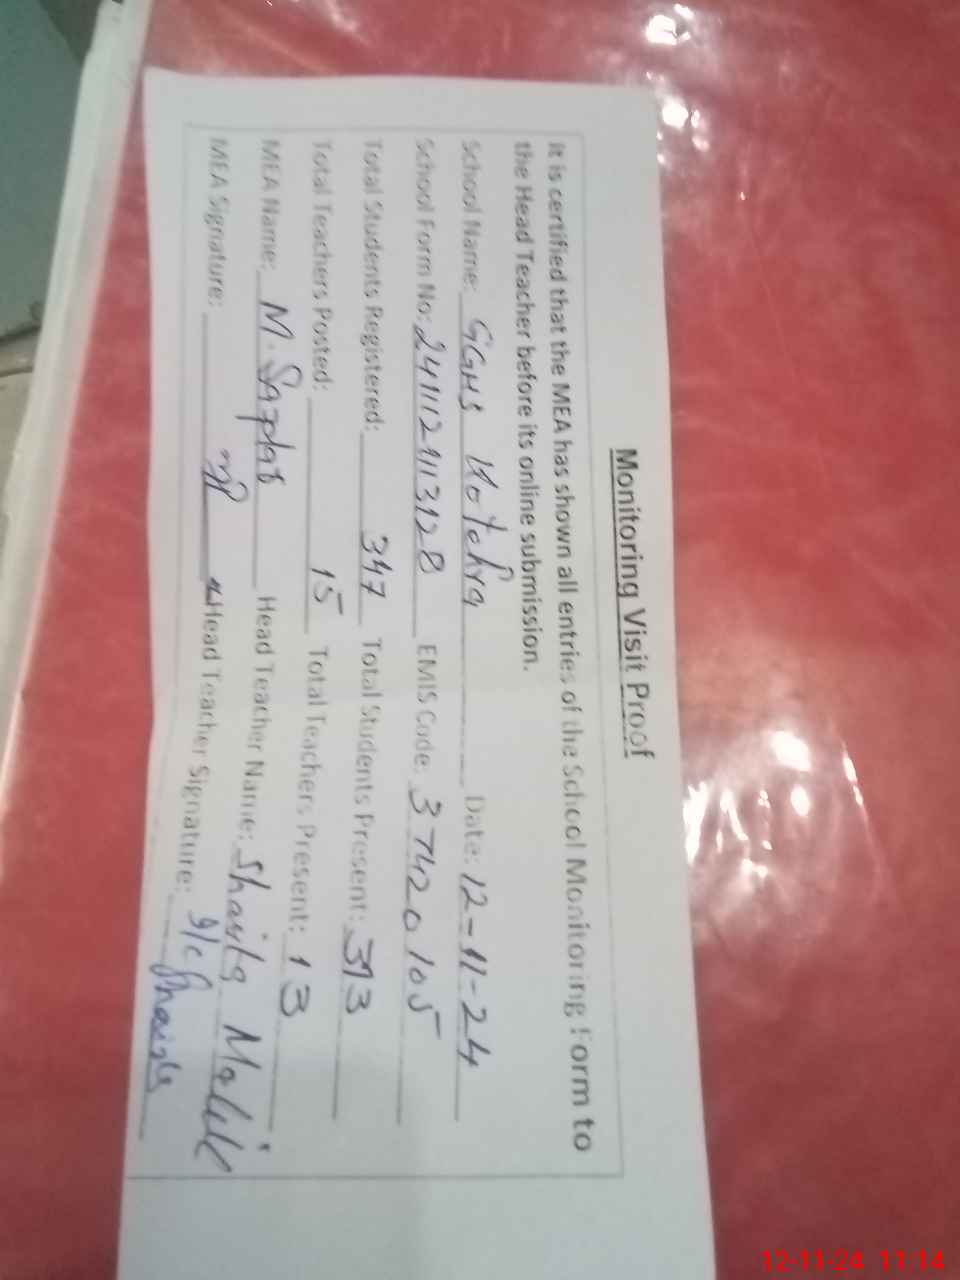 Monitoring Visit Proof
It is certified that the MEA has shown all entries of the School Monitoring Form to
the Head Teacher before its online submission.
School Name: GGHS Hotehra Date: 12-11-24
School Form No: EMIS Code: 37420105
Total Students Registered: 347 Total Students Present: 313
Total Teachers Posted: 15 Total Teachers Present: 13
MEA Name: M. Head Teacher Name: Malik
MEA Signature: Head Teacher Signature: I/C
12-11-24 11:14